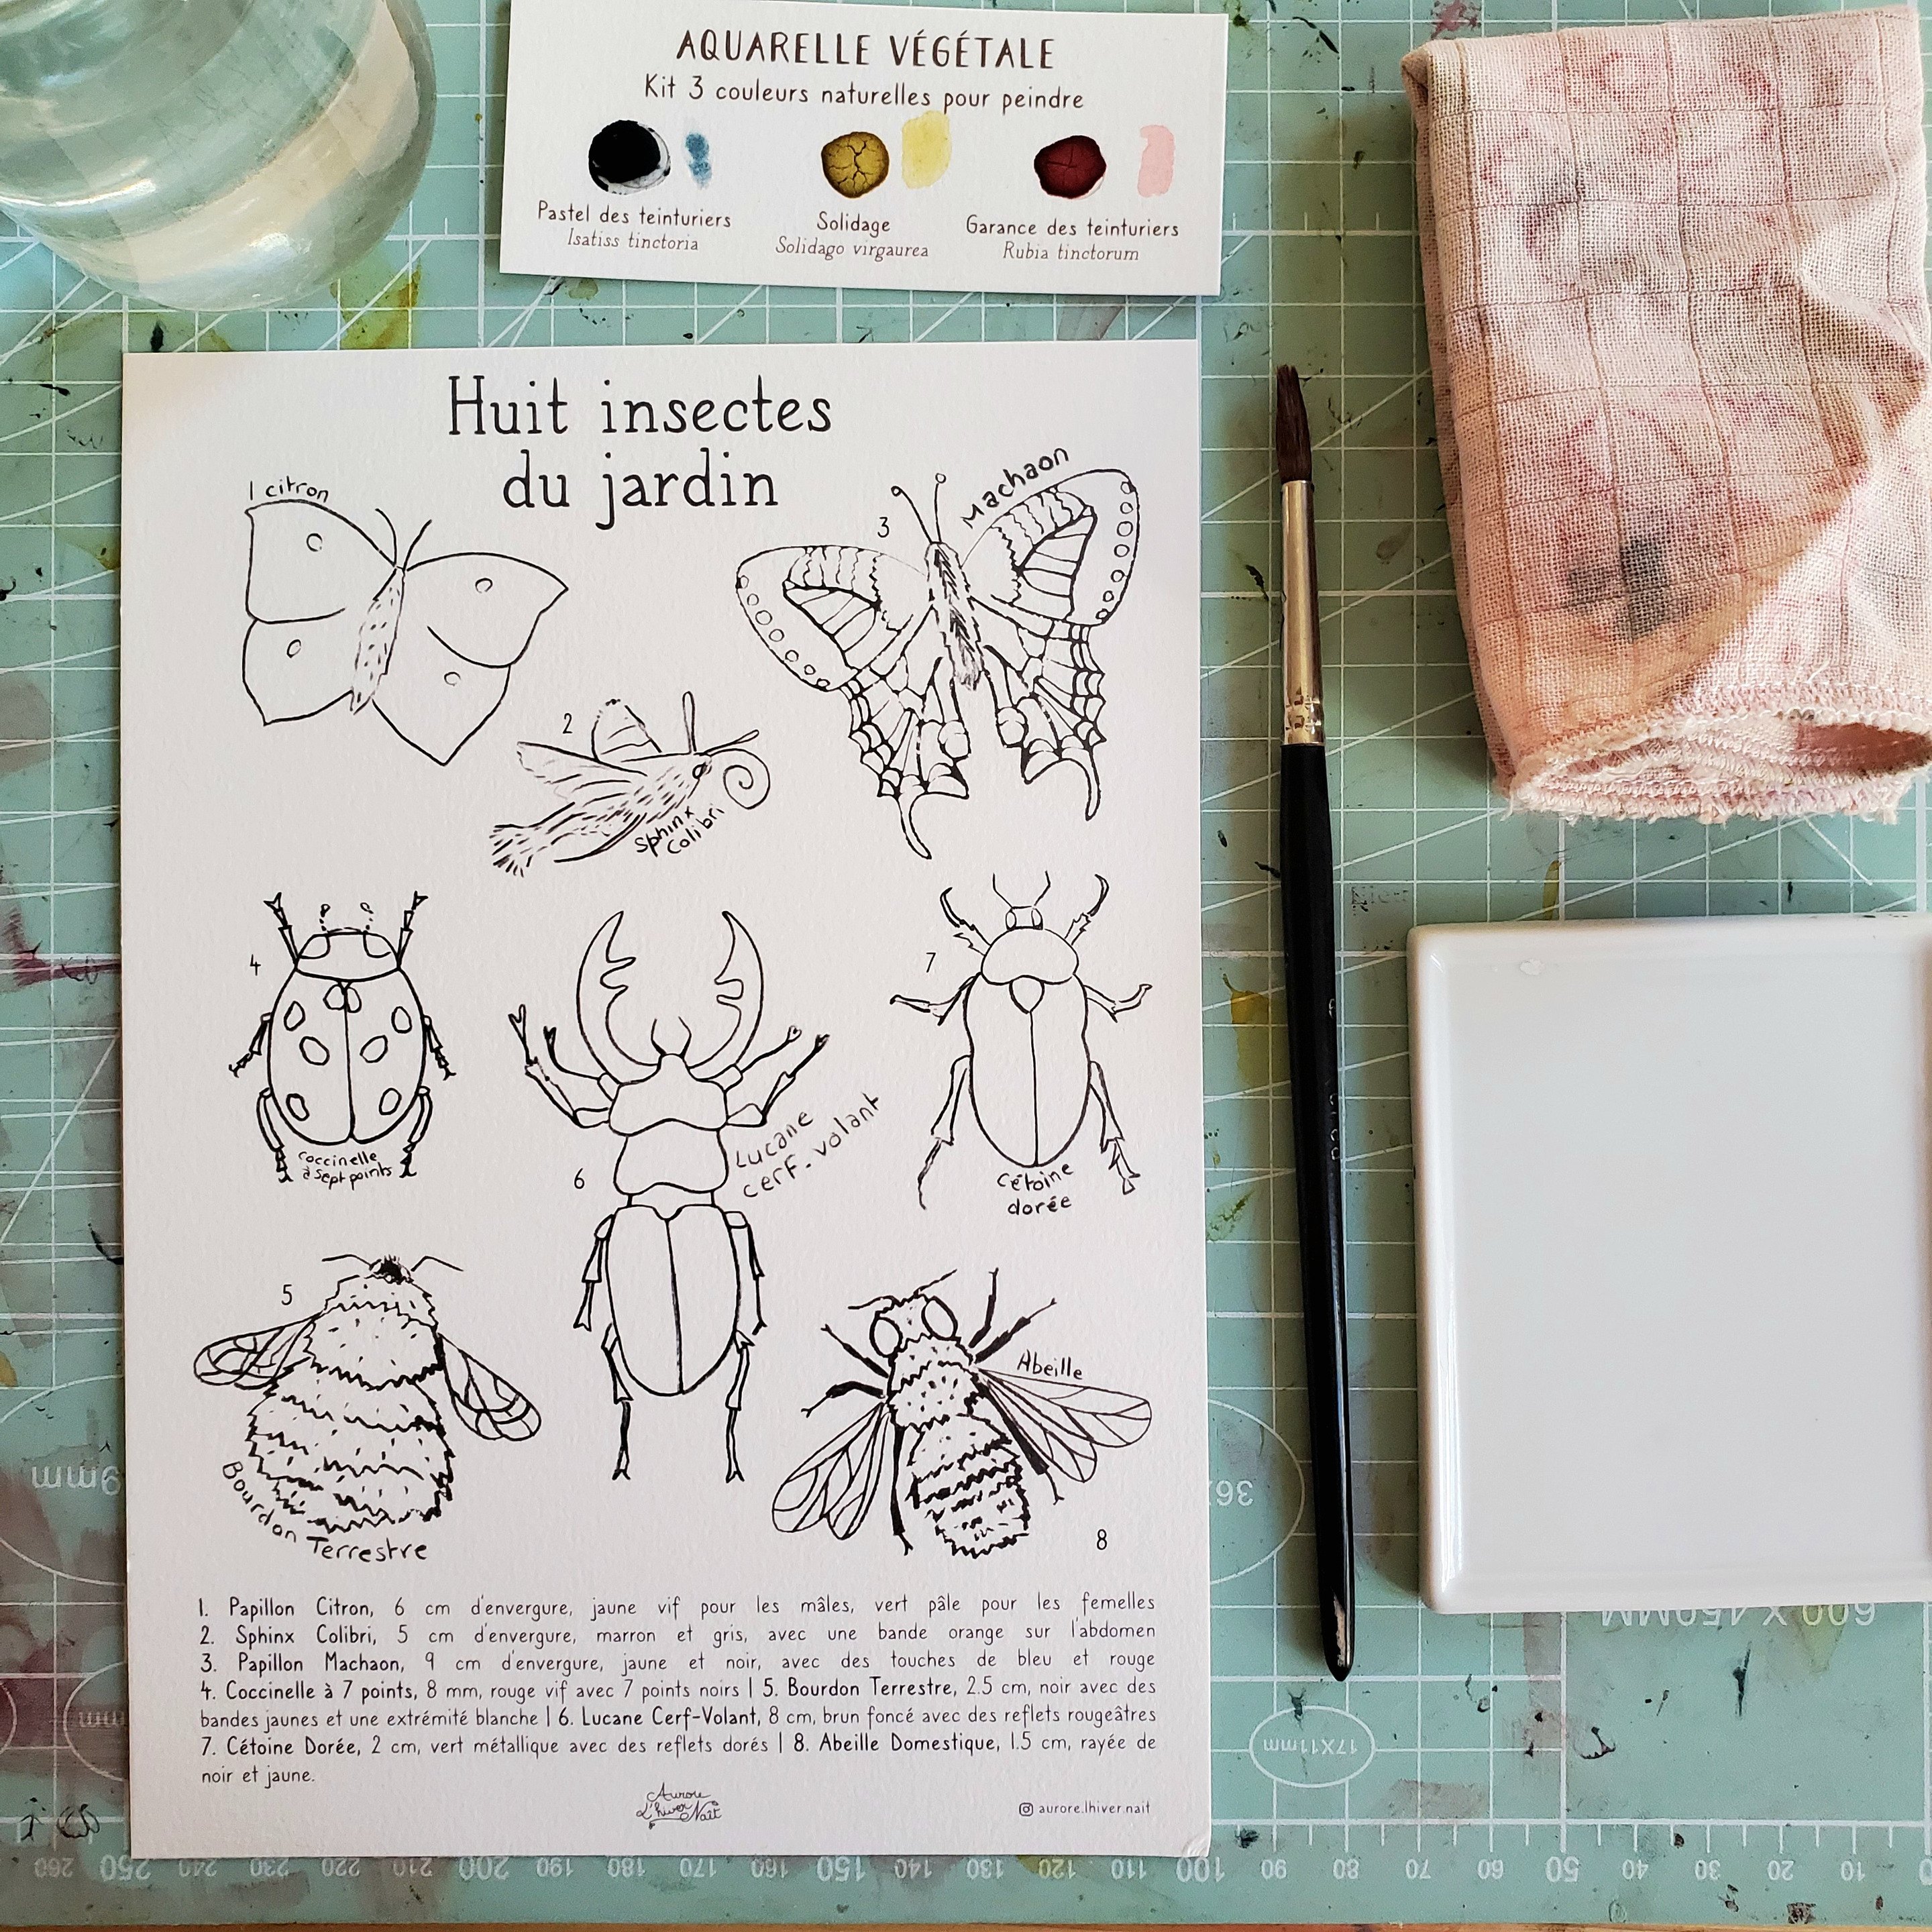 AQUARELLE VÉGÉTALE
Kit 3 couleurs naturelles pour peindre
Pastel des teinturiers
Isatiss tinctoria
Solidage
Solidago virgaurea
Garance des teinturiers
Rubia tinctorum
Huit insectes
du jardin
1 citron
2
Sphinx
Colibri
3
Machaon
4
coccinelle
à sept points
6
Lucane
cerf-volant
7
Cétoine
dorée
5
Bourdon Terrestre
Abeille
8
1. Papillon Citron, 6 cm d'envergure, jaune vif pour les mâles, vert pâle pour les femelles
2. Sphinx Colibri, 5 cm d'envergure, marron et gris, avec une bande orange sur l'abdomen
3. Papillon Machaon, 9 cm d'envergure, jaune et noir, avec des touches de bleu et rouge
4. Coccinelle à 7 points, 8 mm, rouge vif avec 7 points noirs | 5. Bourdon Terrestre, 2.5 cm, noir avec des
bandes jaunes et une extrémité blanche | 6. Lucane Cerf-Volant, 8 cm, brun foncé avec des reflets rougeâtres
7. Cétoine Dorée, 2 cm, vert métallique avec des reflets dorés | 8. Abeille Domestique, 1.5 cm, rayée de
noir et jaune.
Aurore
L'hiver Naît
aurore.lhiver.nait
600 X 450MM
17X11mm
260 250 240 230 220 210 200 190 180 170 160 150 140 130 120 110 100 90 80 70 60 50 40 30 20 10